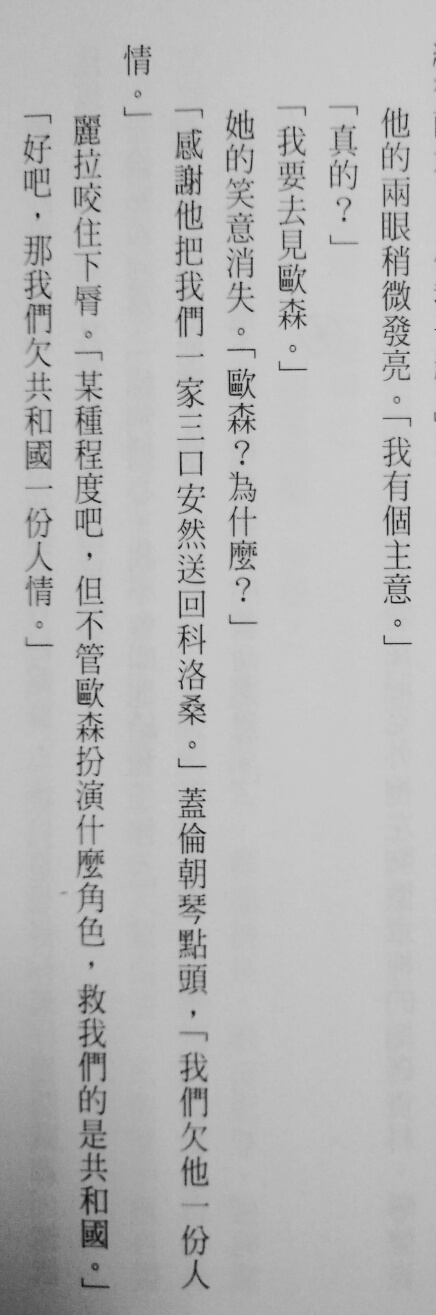 他的兩眼稍微發亮。「我有個主意。」
「真的？」
「我要去見歐森。」
她的笑意消失。「歐森？為什麼？」
「感謝他把我們一家三口安然送回科洛桑。」蓋倫朝琴點頭，「我們欠他一份人
情。」
麗拉咬住下脣。「某種程度吧，但不管歐森扮演什麼角色，救我們的是共和國。」
「好吧，那我們欠共和國一份人情。」